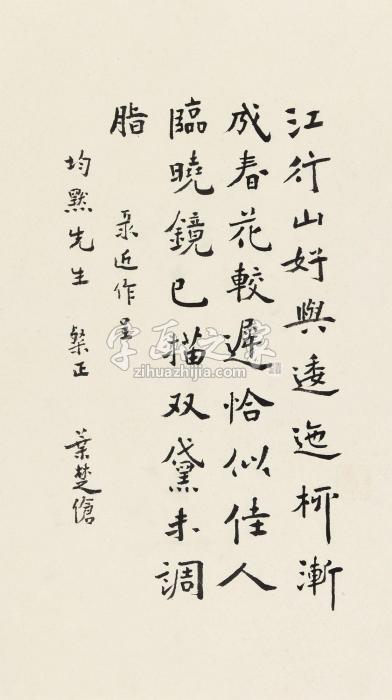 江行山好與逶迤柳漸
成春花較遲恰似佳人
臨曉鏡已描双黛未調
脂
录近作呈
均黙先生 粲正
葉楚傖
字画之家
zihuazhijia.com